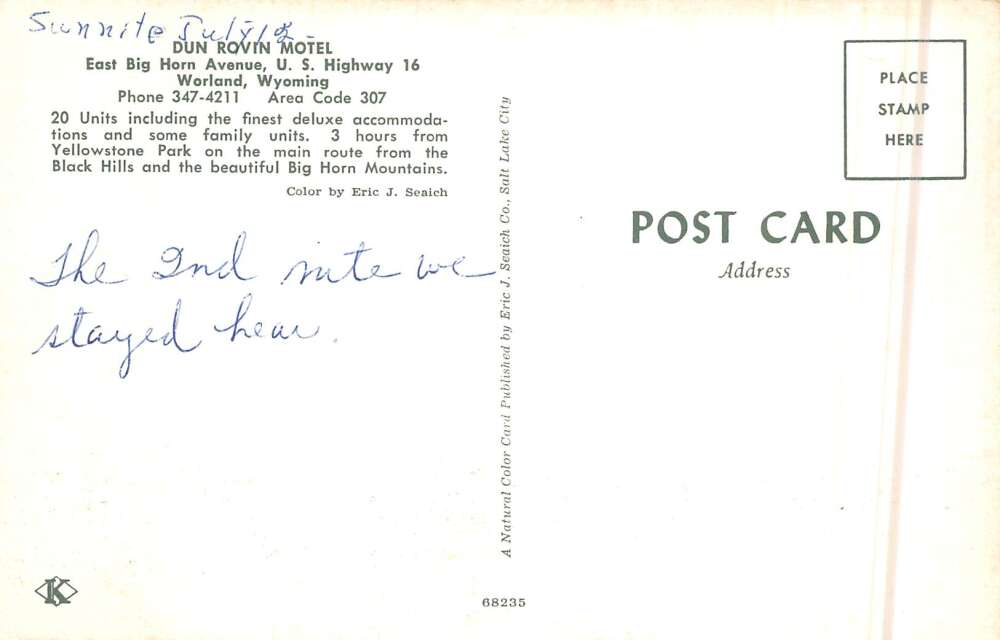 Sunnite July 12
DUN ROVIN MOTEL
East Big Horn Avenue, U. S. Highway 16
Worland, Wyoming
Phone 347-4211 Area Code 307
20 Units including the finest deluxe accommoda-
tions and some family units. 3 hours from
Yellowstone Park on the main route from the
Black Hills and the beautiful Big Horn Mountains.
Color by Eric J. Seaich
The 2nd nite we
stayed hear.
K
A Natural Color Card Published by Eric J. Seaich Co., Salt Lake City
68235
PLACE
STAMP
HERE
POST CARD
Address